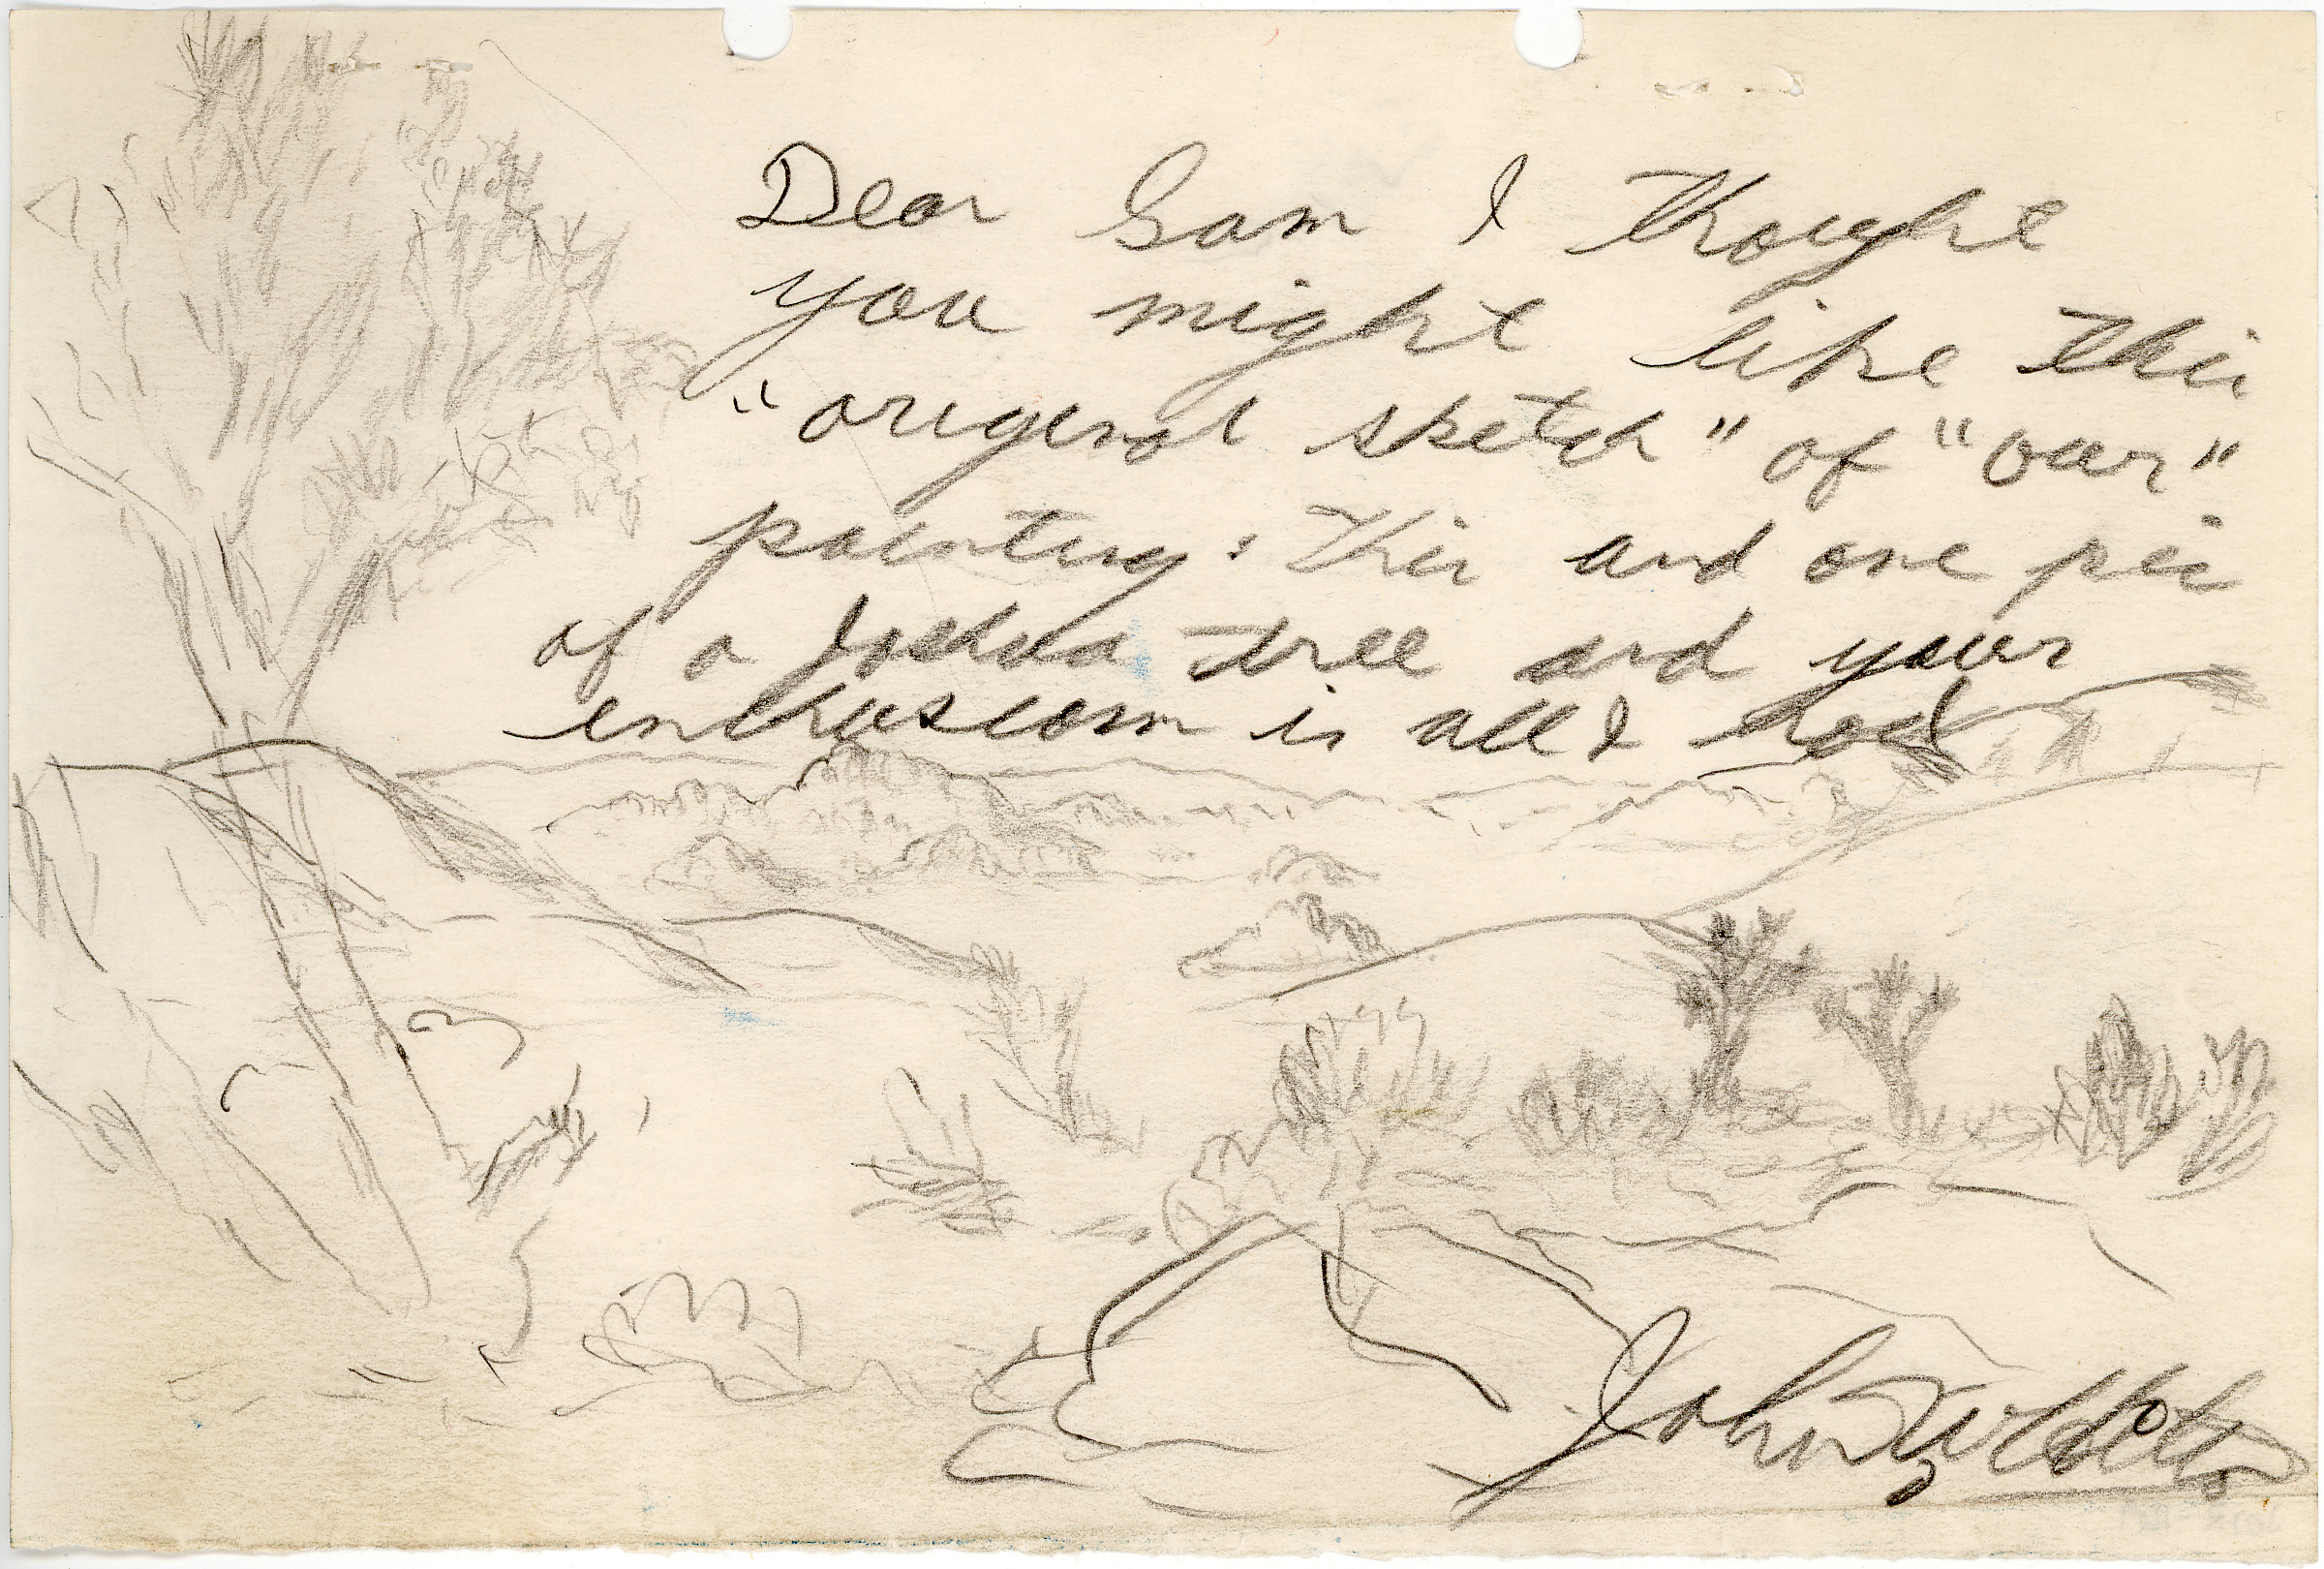 Dear Sam I thought
you might like this
"original sketch" of "our"
painting: This and one pic
of a Joshua tree and your
enthusiasm is all I had
John